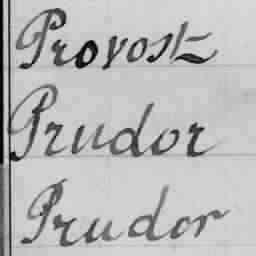 Provost
Prudor
Prudor